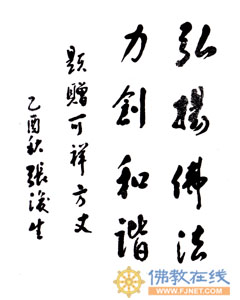 弘扬佛法
力创和谐
题赠可祥方丈
乙酉秋張浚生
佛教在线
WWW.FJNET.COM